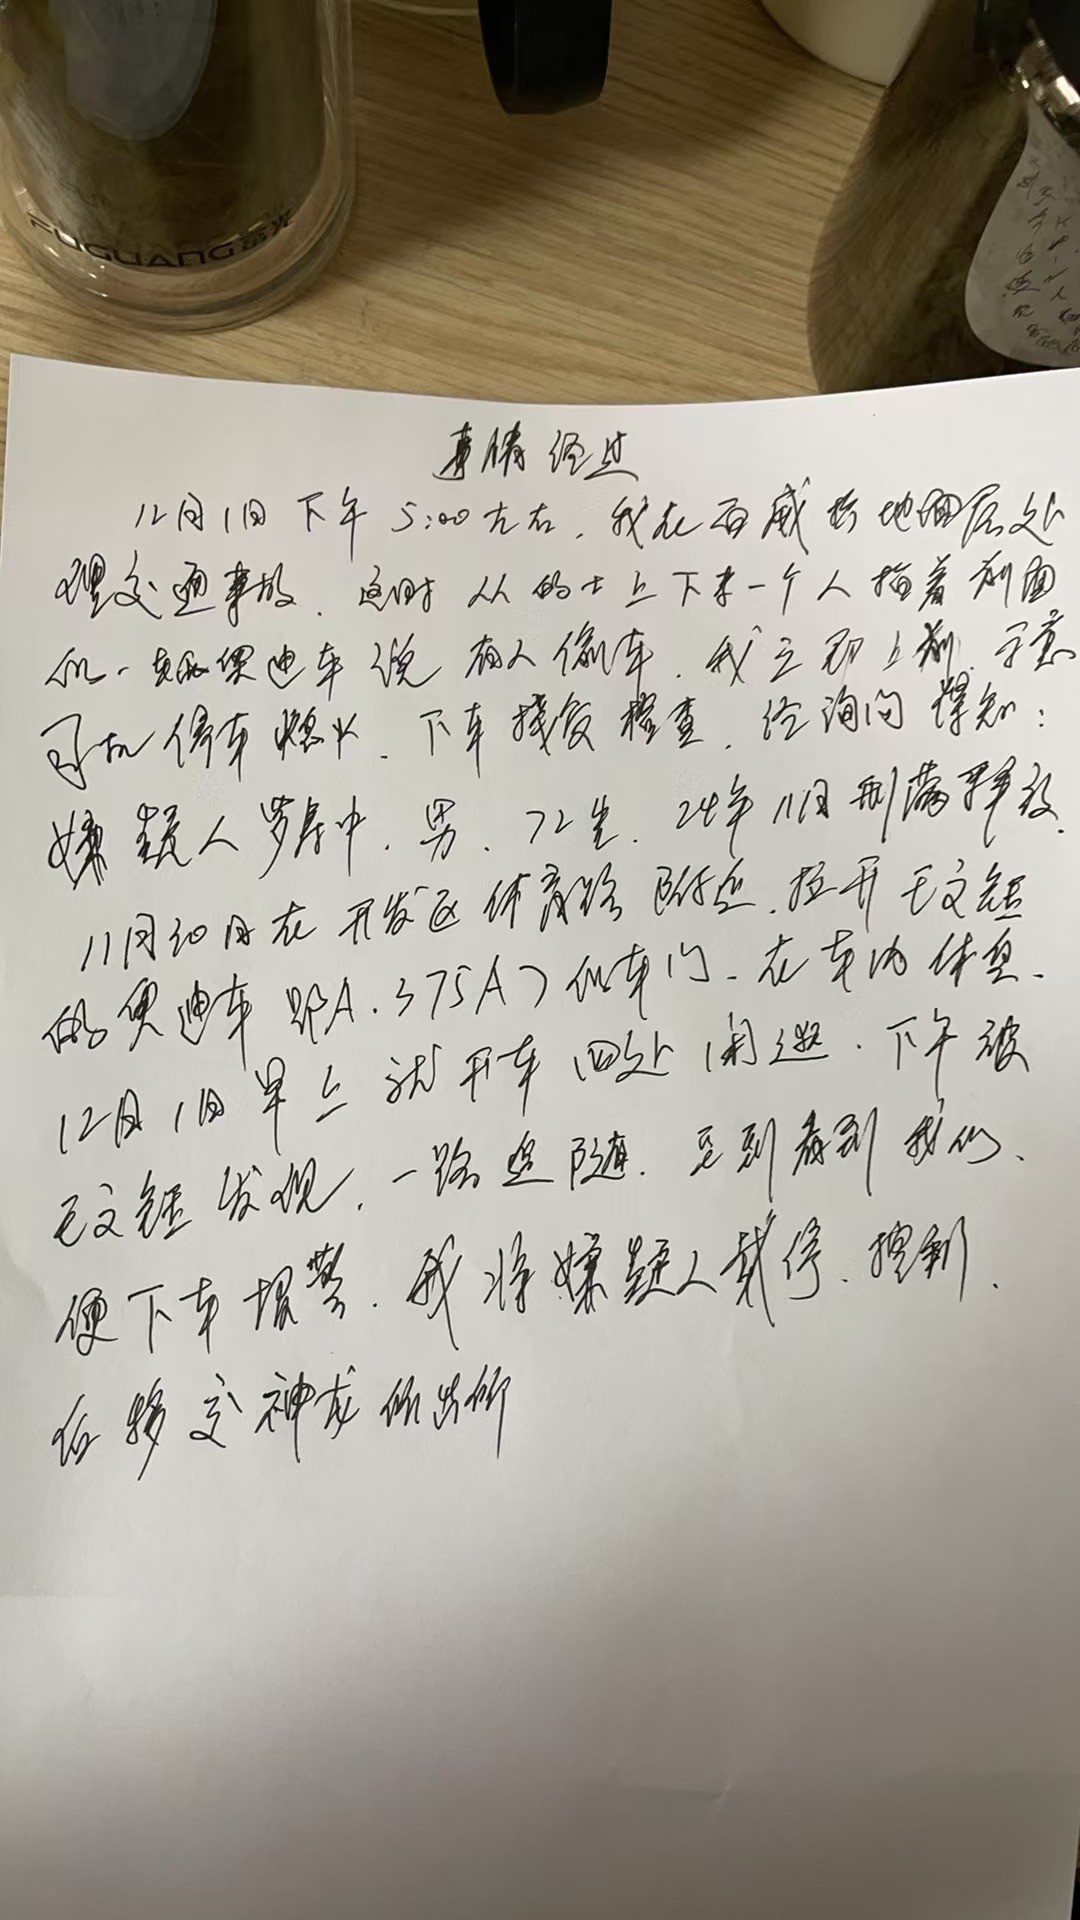 FUGUANG富光
事情经过
12月1日下午5:00左右，我在百威桥地面层处
理交通事故，这时从的士上下来一个人指着前面
的一辆奥迪车说有人偷车，我立即上前，示意
司机停车熄火，下车接受检查，经询问得知：
嫌疑人罗 中，男，72生，24年11月刑满释放，
11月30日在开发区体育路附近，拉开王文
的奥迪车鄂A·375A7的车门，在车内休息，
12月1日早上就开车四处闲逛，下午被
王文 发现，一路追随，直到看到我们，
便下车报警，我将嫌疑人截停、控制，
后移交神龙派出所